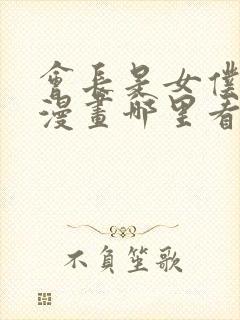 會長是女僕
漫畫哪里看
不負笙歌